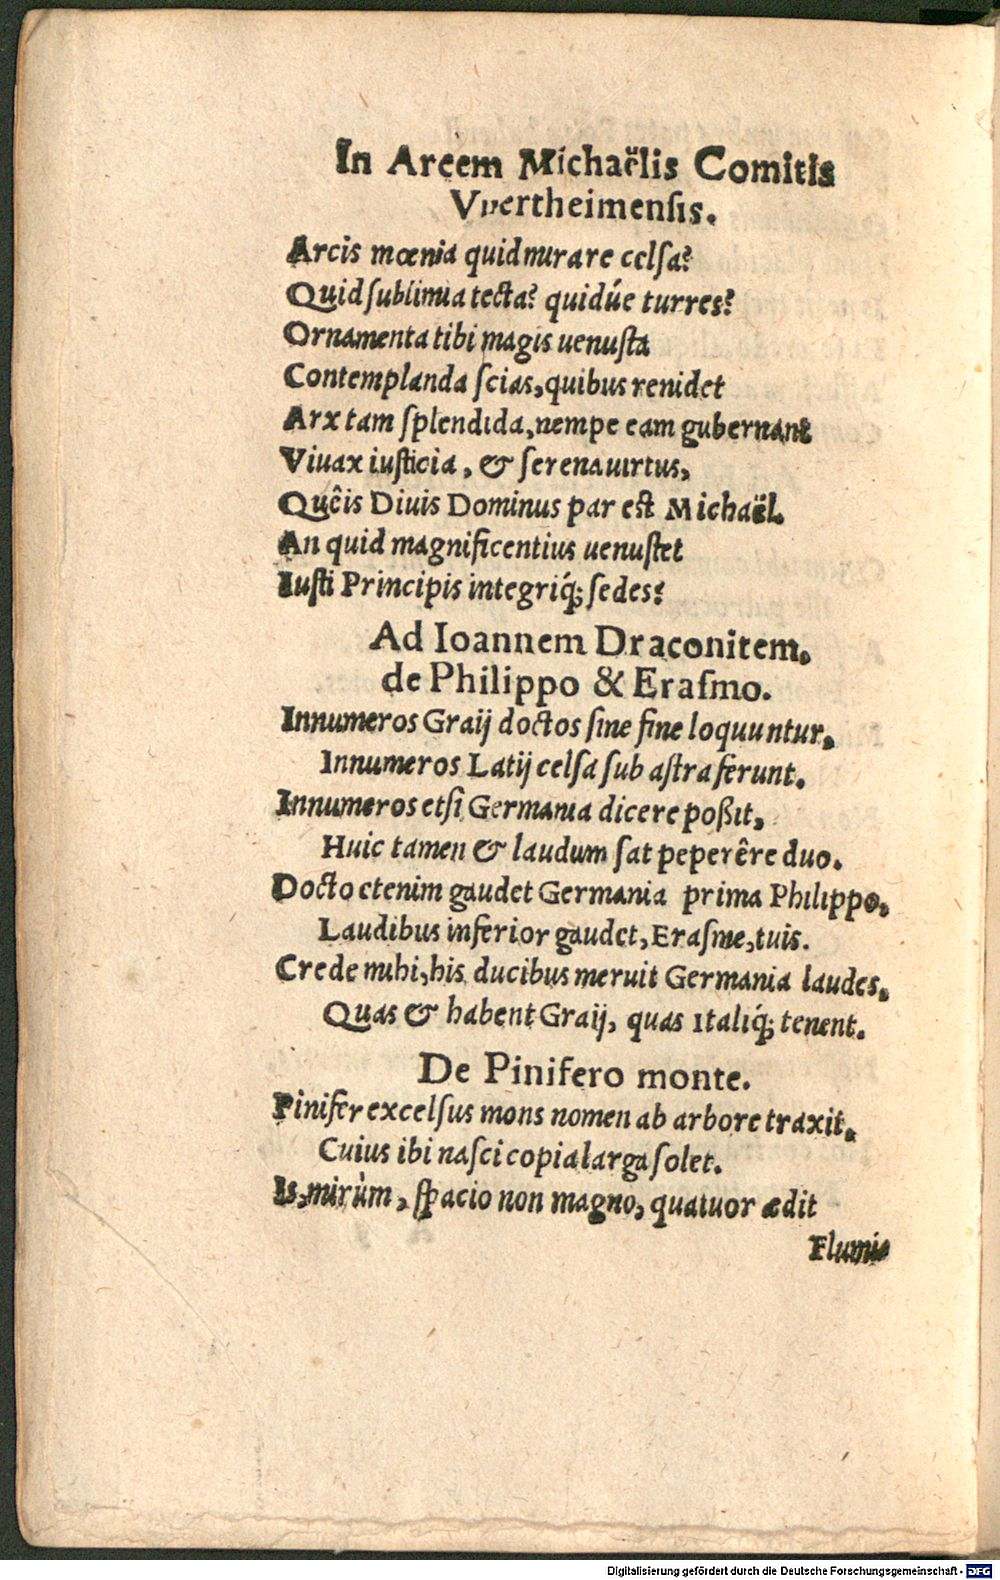 In Arcem Michaëlis Comitis
Vuertheimensis.
Arcis mœnia quid mirare celsa?
Quid sublimia tecta? quidúe turres?
Ornamenta tibi magis uenusta
Contemplanda scias, quibus renidet
Arx tam splendida, nempe eam gubernant
Viuax iusticia, & serena uirtus,
Quêis Diuis Dominus par est Michaël.
An quid magnificentius uenustet
Iusti Principis integriq́; sedes?
Ad Ioannem Draconitem.
de Philippo & Erasmo.
Innumeros Graij doctos sine fine loquuntur,
Innumeros Latij celsa sub astra ferunt.
Innumeros etsi Germania dicere poßit,
Huic tamen & laudum sat peperêre duo.
Docto etenim gaudet Germania prima Philippo,
Laudibus inferior gaudet, Erasme, tuis.
Crede mihi, his ducibus meruit Germania laudes,
Quas & habent Graij, quas Italiq́; tenent.
De Pinifero monte.
Pinifer excelsus mons nomen ab arbore traxit,
Cuius ibi nasci copia larga solet.
Is, mirùm, spacio non magno, quatuor ædit
Flumi-
Digitalisierung gefördert durch die Deutsche Forschungsgemeinschaft - DFG